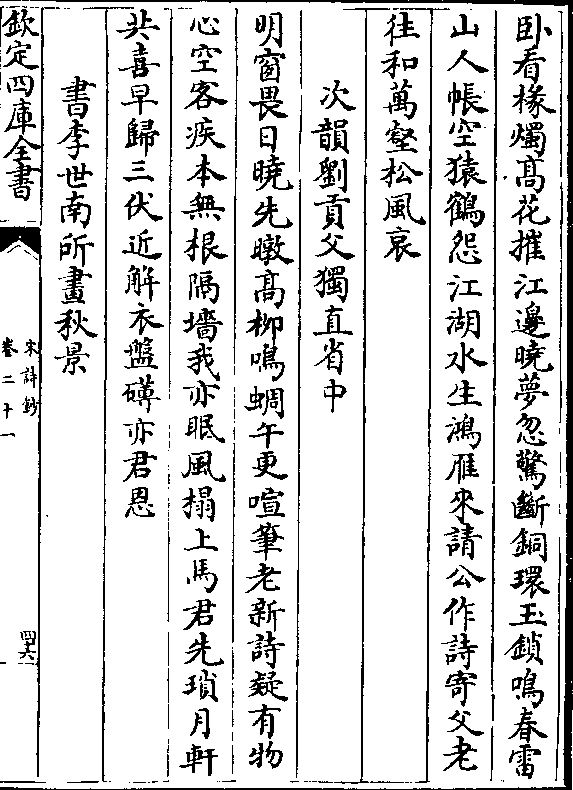 卧看椽燭髙花摧江邊曉夢忽驚斷銅環玉鎖鳴春雷
山人帳空猿鶴怨江湖水生鴻雁來請公作詩寄父老
往和萬壑松風哀
次韻劉貢父獨直省中
明窗畏日曉先暾髙柳鳴蜩午更喧筆老新詩疑有物
心空客疾本無根隔墻我亦眠風榻上馬君先瑣月軒
共喜早歸三伏近解衣盤礴亦君恩
書李世南所畫秋景
欽定四庫全書
宋詩鈔
卷二十一
四六